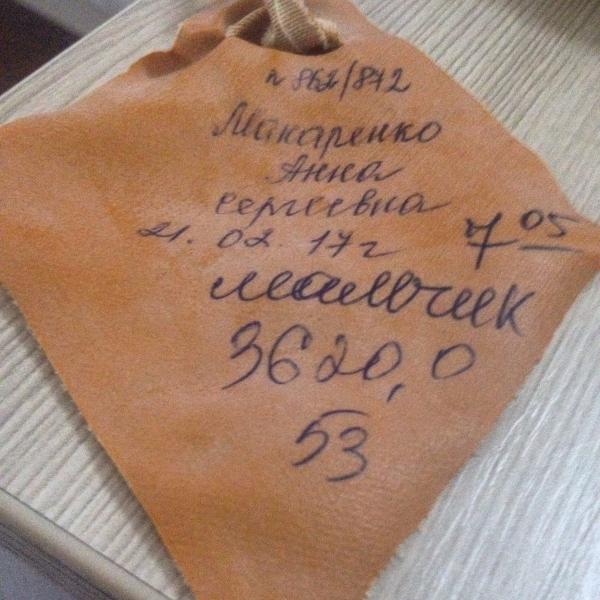 n 862/842
Макаренко
Анна
Сергеевна
21. 02. 17г 7 05
мальчик
3620,0
53